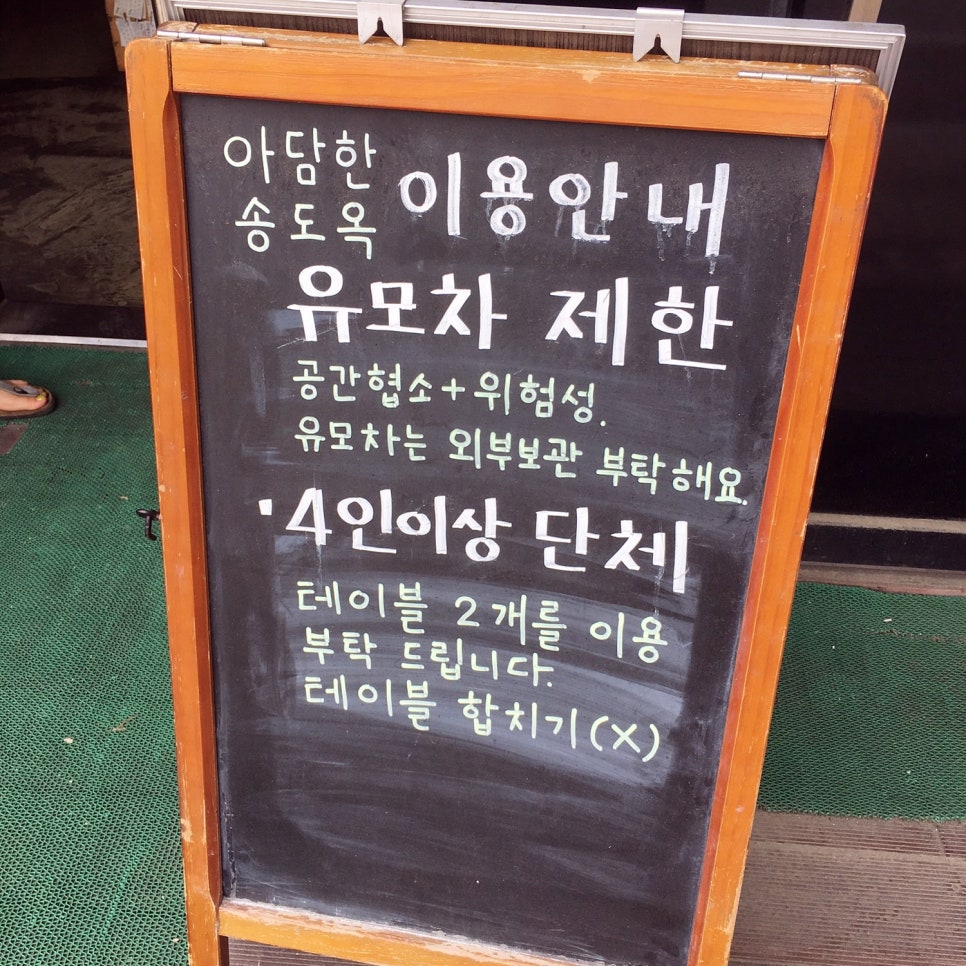 아담한
송도옥 이용안내
유모차 제한
공간협소+위험성.
유모차는 외부보관 부탁해요.
·4인이상 단체
테이블 2개를 이용
부탁 드립니다.
테이블 합치기(X)